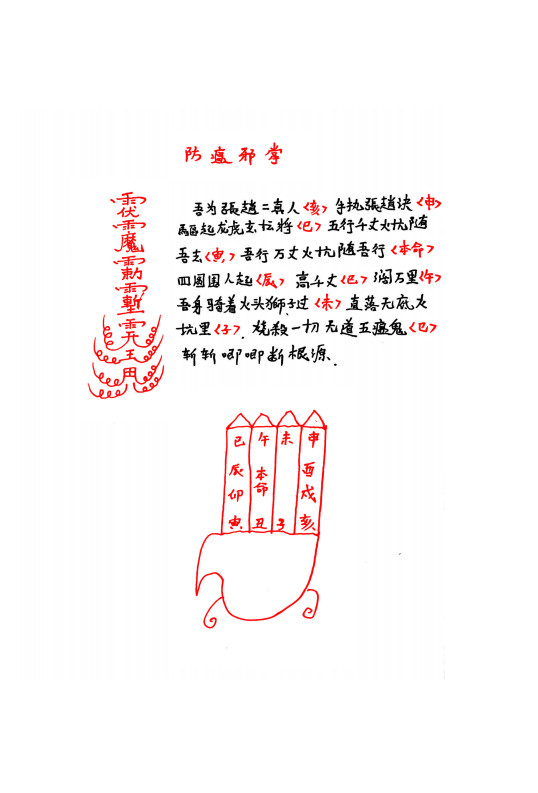 防瘟邪掌
吾为張趙二真人〈亥〉手执張趙诀〈申〉
驅起龙虎玄坛將〈巳〉五行千丈火坑随
吾去〈寅〉吾行万丈火坑随吾行〈本命〉
四圍国人起〈辰〉高千丈〈巳〉濶万里〈午〉
吾身骑着火头獅子过〈未〉直落无底火
坑里〈子〉.烧殺一切无道五瘟鬼〈巳〉
斬斬唧唧断根源.
魔
王
用
巳 午 未 申
辰 本命 酉
卯 戍
寅 丑 子 亥